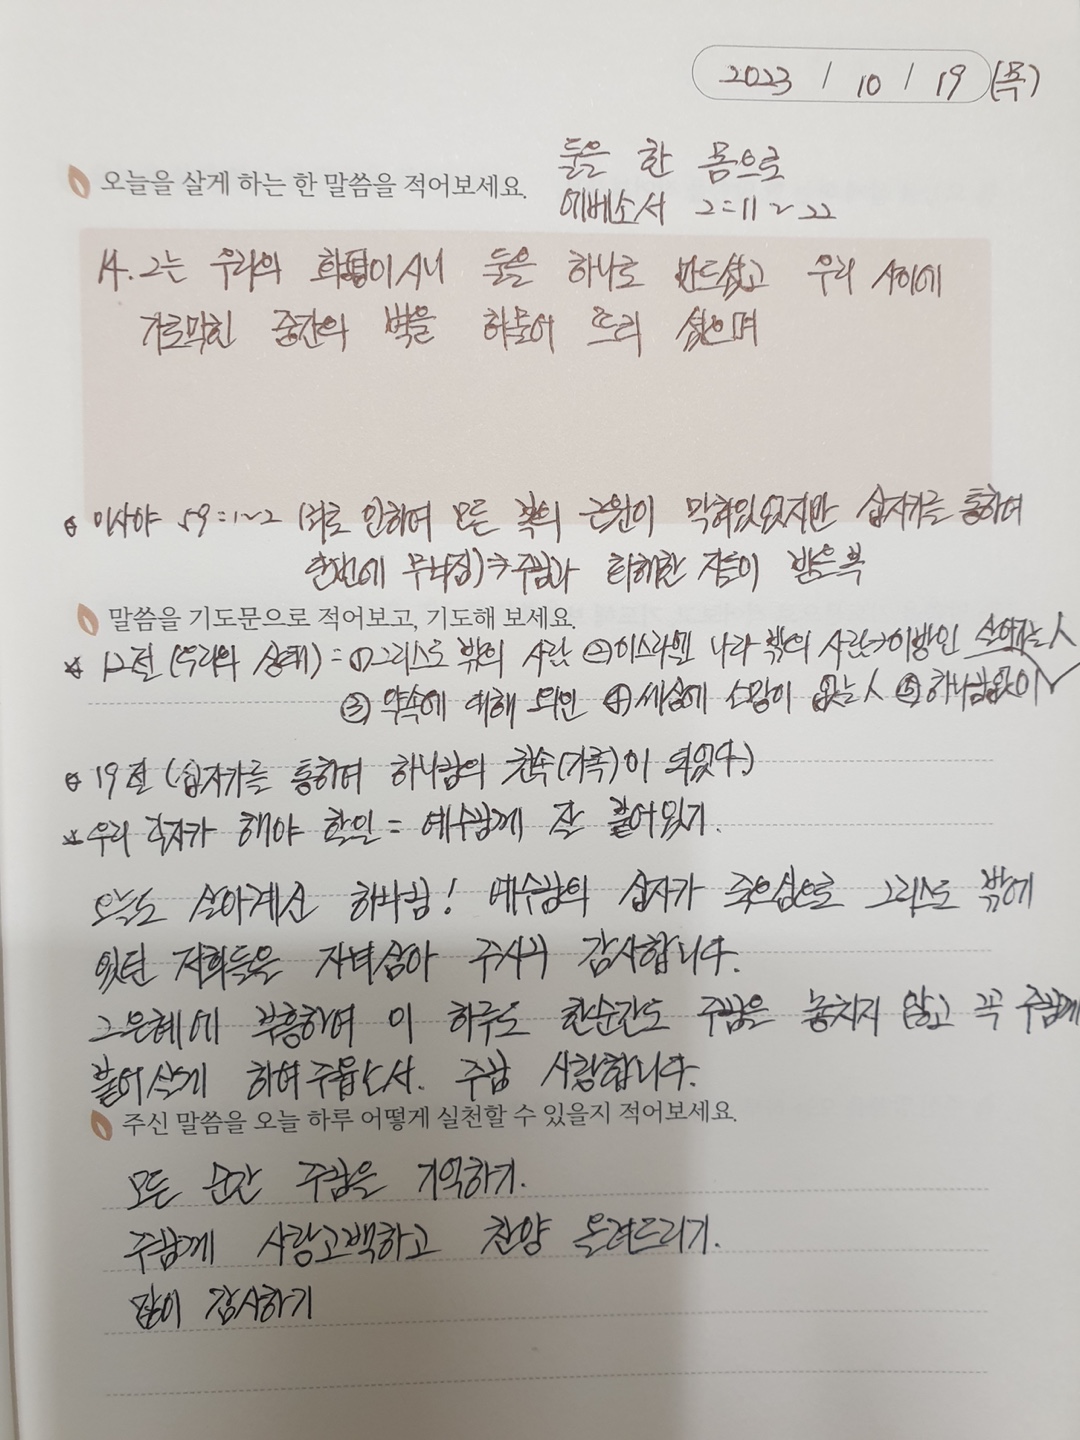 2023 / 10 / 19 (목)
둘을 한 몸으로
오늘을 살게 하는 한 말씀을 적어보세요.
에베소서 2:11~22
14. 그는 우리의 화평이시니 둘을 하나로 만드셨고 우리 사이에
가로막힌 중간의 벽을 허물어 뜨리 셨으며
이사야 59:1~2 (죄로 인하여 모든 복의 근원이 막혀있었지만 십자가를 통하여
단번에 무너짐)→주님과 화해한 자들이 받은 복
말씀을 기도문으로 적어보고, 기도해 보세요.
* 12절 (우리의 상태) = ①그리스도 밖의 사람 ②이스라엘 나라 밖의 사람→이방인 사람
③ 약속에 대해 외인 ④세상에 소망이 없는 人 ⑤하나님없이
19절 (십자가를 통하여 하나님의 권속(가족)이 되었다.)
* 우리 각자가 해야 할일 = 예수님께 잘 붙어있기.
오늘도 살아계신 하나님! 예수님의 십자가 죽으심으로 그리스도 밖에
있던 저희들을 자녀삼아 주시니 감사합니다.
그은혜에 부흥하여 이 하루도 한순간도 주님을 놓치지 않고 꼭 주님께
붙어 살게 하여주옵소서. 주님 사랑합니다.
주신 말씀을 오늘 하루 어떻게 실천할 수 있을지 적어보세요.
모든 순간 주님을 기억하기.
주님께 사랑고백하고 찬양 올려드리기.
많이 감사하기